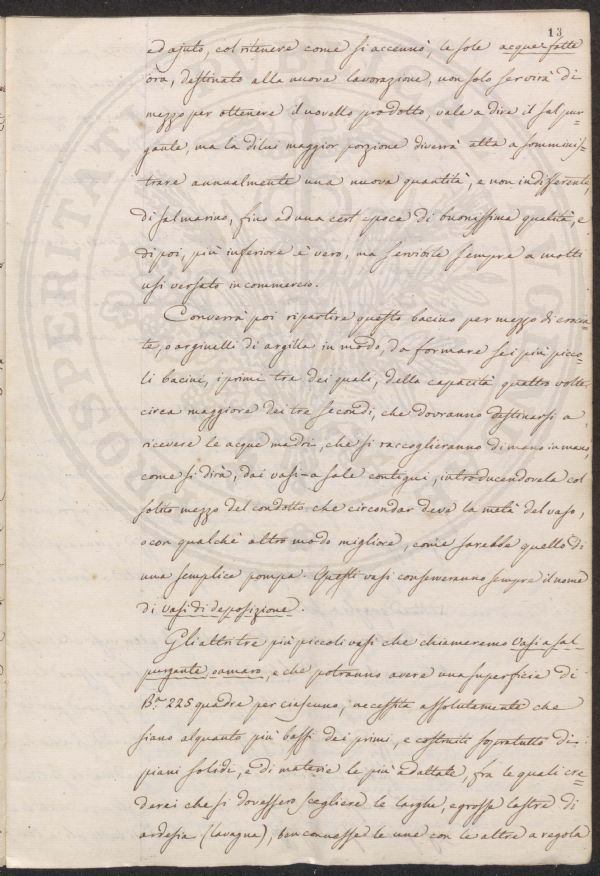 13
ed ajuto, col ritenere come si accennò, le sole acque-fatte
ora, destinato alla nuova lavorazione, non solo servirà di
mezzo per ottenere il novello prodotto, vale a dire il sal pur=
gante, ma la di lui maggior porzione diverrà atta a somminis=
trare annualmente una nuova quantità, e non indifferente,
di sal marino, fino ad una cert' epoca di buonissima qualità, e
di poi, più inferiore è vero, ma servibile sempre a molti
usi versato in commercio.
Converrà poi ripartire questo bacino per mezzo di
te, o arginelli di argilla in modo, da formare sei più picco=
li bacini, i primi tre dei quali, della capacità quattro volte
circa maggiore dei tre secondi, che dovranno destinarsi a
ricevere le acque madri, che si raccoglieranno di mano in mano,
come si dirà, dai vasi-a sale contigui, introducendovela col
solito mezzo del condotto che circondar deve la metà del vaso,
o con qualche altro modo migliore, come sarebbe quello di
una semplice pompa. Questi vasi conserveranno sempre il nome
di vasi di deposizione.
Gli altri tre più piccoli vasi che chiameremo vasi a sal-
purgante, o amaro, e che potranno avere una superficie di
Br. 225 quadre per ciascuno, necessita assolutamente che
siano alquanto più bassi dei primi, e costruiti sopratutto di
piani solidi, e di materie le più adattate, fra le quali cre=
derei che si dovessero scegliere le larghe, e grosse lastre di
ardesia (lavagna), ben connesse le une con le altre a regola